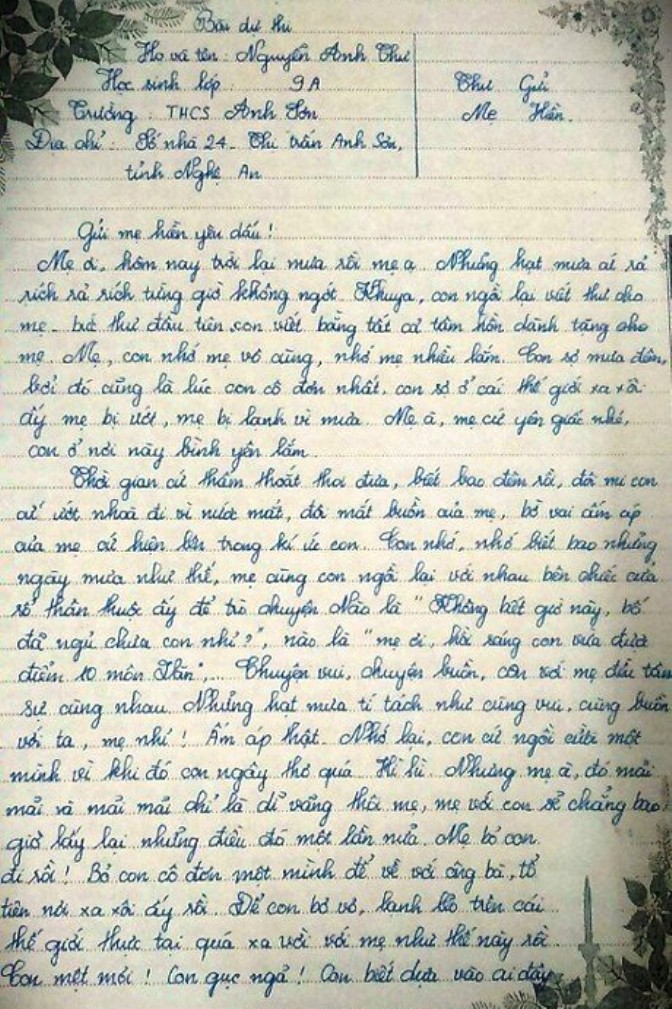 Bài dự thi
Họ và tên : Nguyễn Anh Thư
Học sinh lớp : 9A
Thư Gửi
Trường : THCS Anh Sơn
Mẹ Hiền.
Địa chỉ : Số nhà 24 - Thị trấn Anh Sơn,
tỉnh Nghệ An
Gửi mẹ hiền yêu dấu !
Mẹ ơi, hôm nay trời lại mưa rồi mẹ ạ. Những hạt mưa cứ rả
rích rả rích từng giờ không ngớt. Khuya, con ngồi lại viết thư cho
mẹ - bức thư đầu tiên con viết bằng tất cả tâm hồn dành tặng cho
mẹ. Mẹ, con nhớ mẹ vô cùng, nhớ mẹ nhiều lắm. Con sợ mưa đêm,
bởi đó cũng là lúc con cô đơn nhất, con sợ ở cái thế giới xa xôi
ấy mẹ bị ướt, mẹ bị lạnh vì mưa. Mẹ à, mẹ cứ yên giấc nhé,
con ở nơi này bình yên lắm.
Thời gian cứ thấm thoát thoi đưa, biết bao đêm rồi, đôi mi con
cứ ướt nhoà đi vì nước mắt, đôi mắt buồn của mẹ, bờ vai ấm áp
của mẹ cứ hiện lên trong kí ức con. Con nhớ, nhớ biết bao những
ngày mưa như thế, mẹ cùng con ngồi lại với nhau bên chiếc cửa
sổ thân thuộc ấy để trò chuyện. Nào là " Không biết giờ này, bố
đã ngủ chưa con nhỉ ?", nào là " mẹ ơi, hồi sáng con vừa được
điểm 10 môn Văn",... Chuyện vui, chuyện buồn, con với mẹ đều tâm
sự cùng nhau. Những hạt mưa tí tách như cùng vui, cùng buồn
với ta, mẹ nhỉ ! Ấm áp thật. Nhớ lại, con cứ ngồi cười một
mình vì khi đó con ngây thơ quá. Hì hì. Nhưng mẹ à, đó mãi
mãi và mãi mãi chỉ là dĩ vãng thôi mẹ, mẹ với con sẽ chẳng bao
giờ lấy lại những điều đó một lần nữa. Mẹ bỏ con
đi rồi ! Bỏ con cô đơn một mình để về với ông bà, tổ
tiên nơi xa xôi ấy rồi. Để con bơ vơ, lạnh lẽo trên cái
thế giới thực tại quá xa vời với mẹ như thế này rồi.
Con mệt mỏi ! Con gục ngã ! Con biết dựa vào ai đây